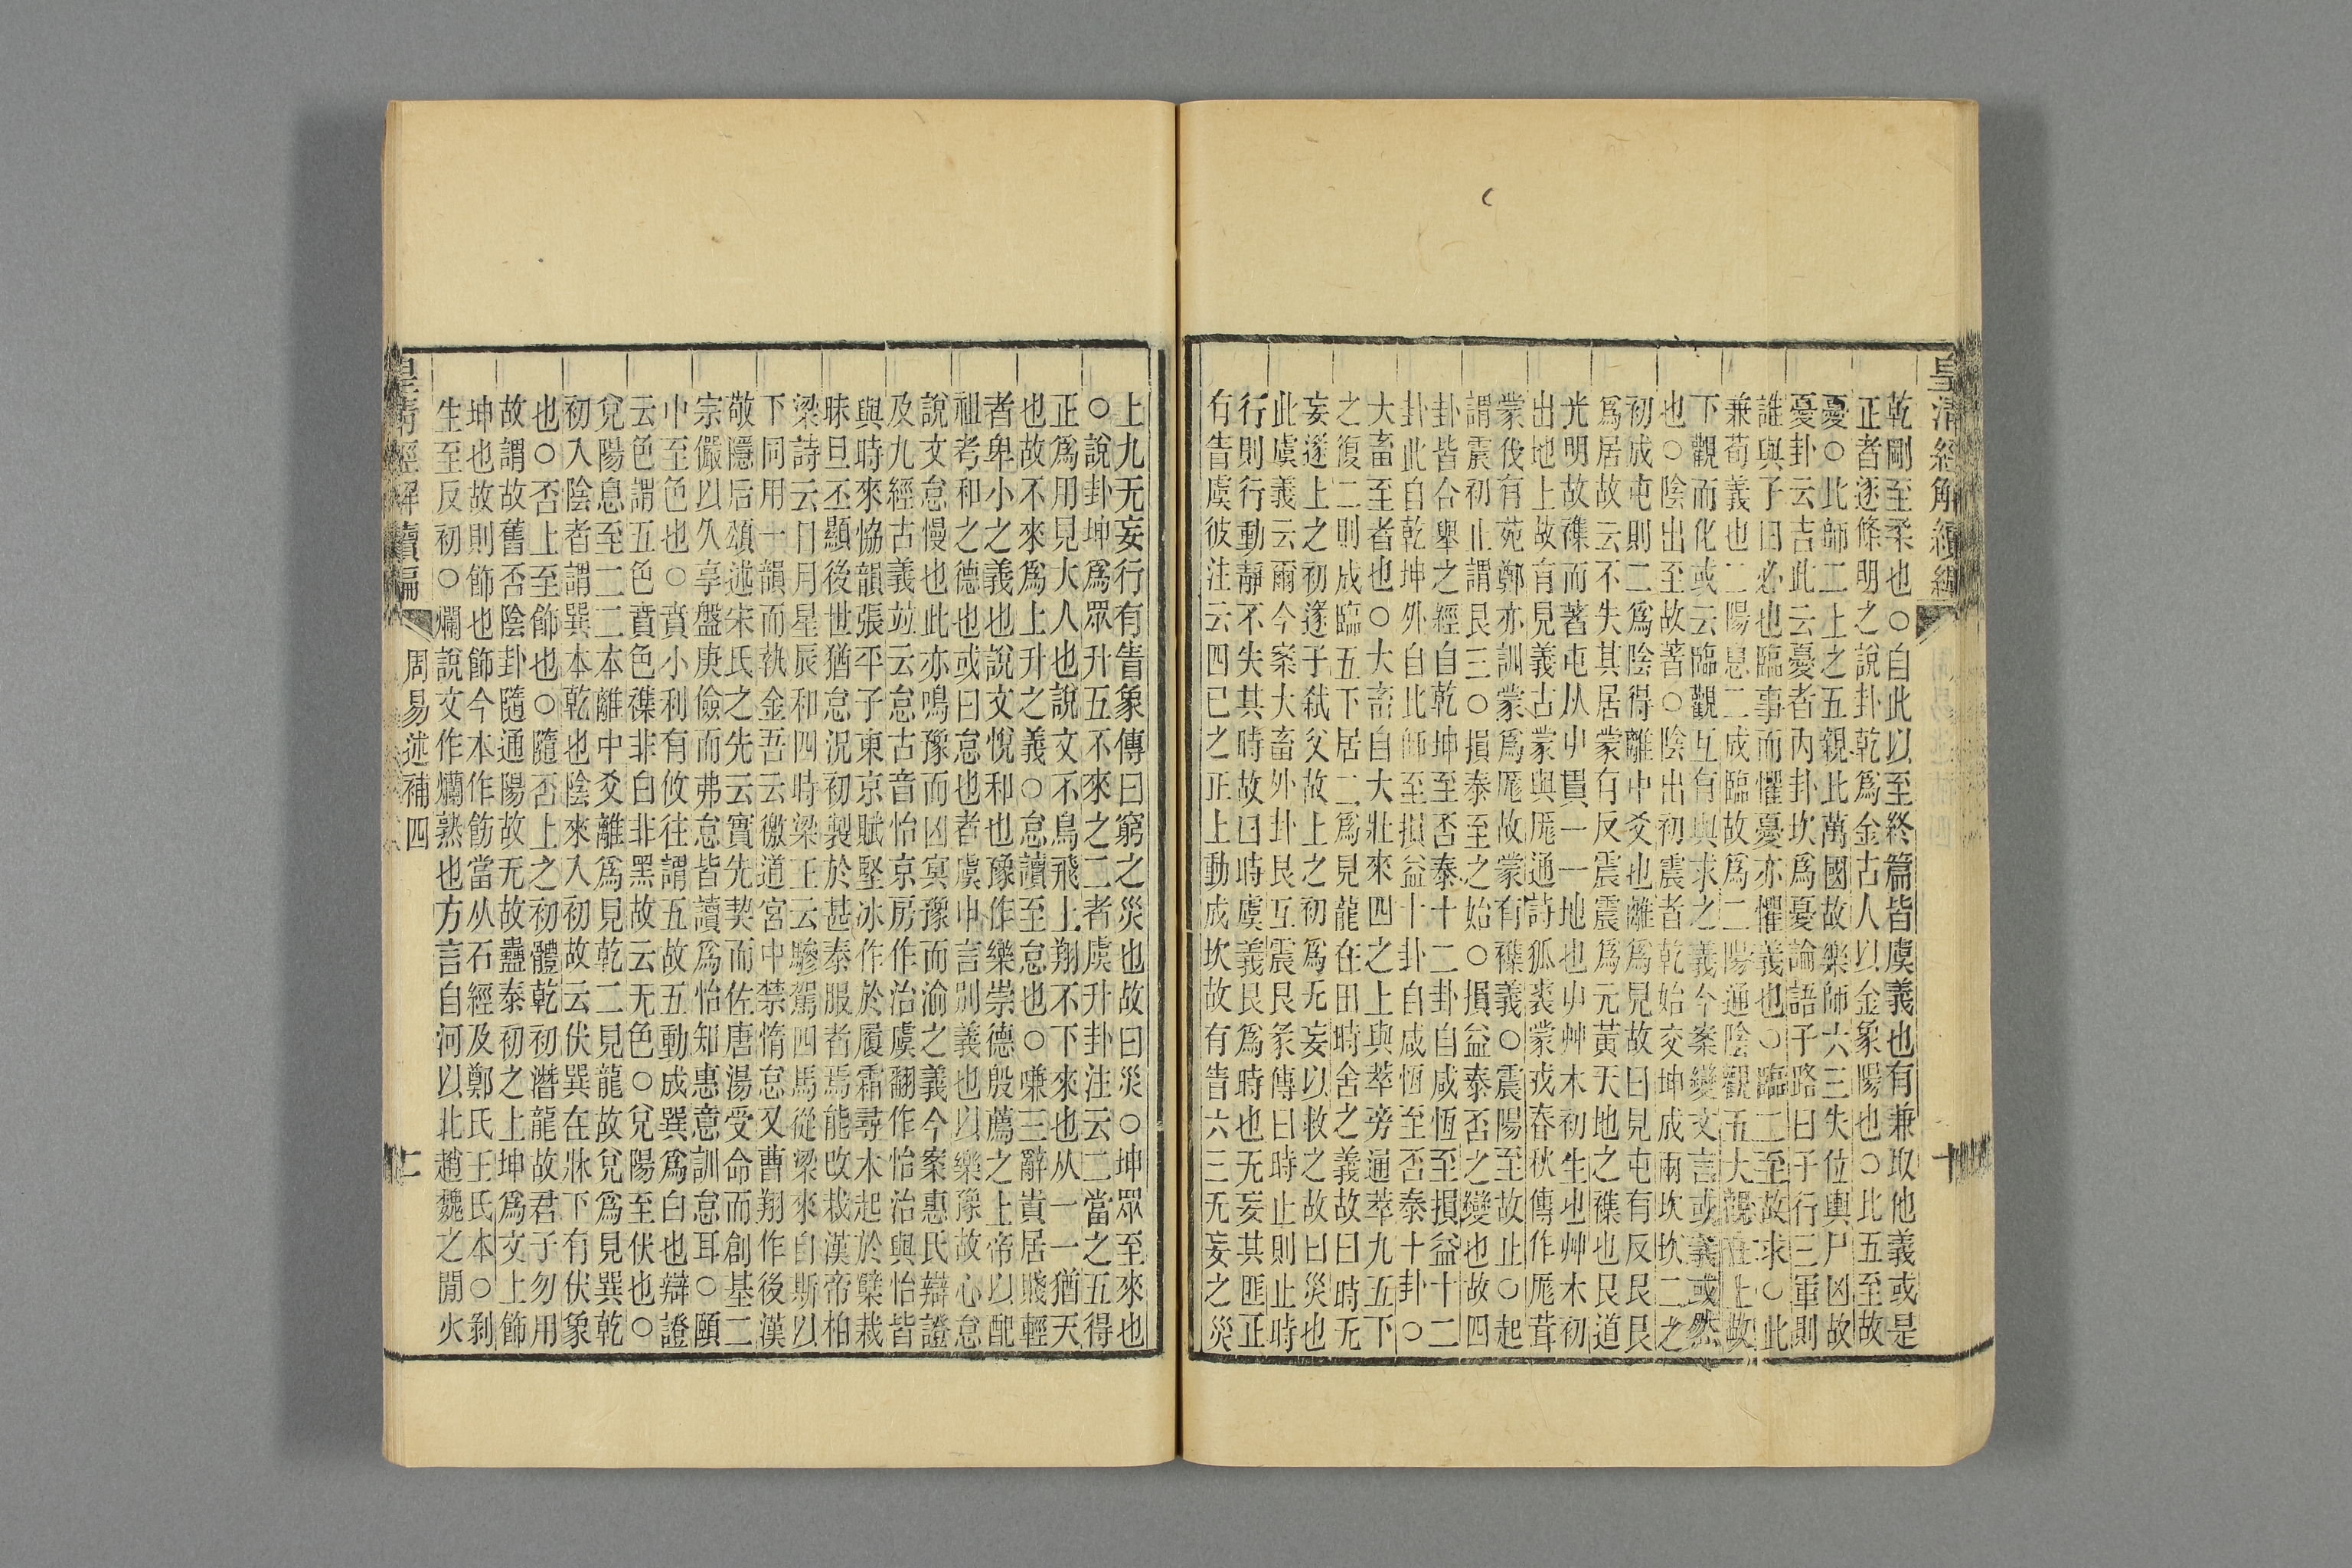 皇清經解續編
十
乾剛至柔也○自此以至終篇皆虞義也有兼取他義或是
正者逐條明之說卦乾爲金古人以金象陽也○比五至故
憂○北師二上之五親此萬國故樂師六三失位輿尸凶故
憂卦云吉此云憂者內卦坎爲憂論語子路曰子行三軍則
誰與子曰必也臨事而懼憂亦懼義也○臨二至故求○此
兼荀義也二陽息二成臨故爲二陽通陰觀五大觀在上故
下觀而化或云臨觀互有與求之義今案變文言或義或然
也○陰出至故著○陰出初震者乾始交坤成兩坎坎二之
初成屯則二爲陰得離中爻也離爲見故曰見屯有反艮艮
爲居故云不失其居蒙有反震震爲元黃天地之襍也艮道
光明故襍而著屯从屮貫一一地也屮艸木初生也艸木初
出地上故有見義古蒙與厖通詩狐裘蒙戎春秋傳作厖茸
蒙伐有苑鄭亦訓蒙爲厖故蒙有襍義○震陽至故止○起
謂震初止謂艮三○損泰至之始○損益泰否之變也故四
卦皆合舉之經自乾坤至否泰十二卦自咸恆至損益十二
卦此自乾坤外自比師至損益十卦自咸恆至否泰十卦○
大畜至者也○大畜自大壯來四之上與萃旁通萃九五下
之復二則成臨五下居二爲見龍在田時舍之義故曰時无
妄遂上之初遂子弒父故上之初爲无妄以救之故曰災也
此虞義云爾今案大畜外卦艮互震艮彖傳曰時止則止時
行則行動靜不失其時故曰時虞義艮爲時也无妄其匪正
有眚虞彼注云四已之正上動成坎故有眚六三无妄之災
上九无妄行有眚象傳曰窮之災也故曰災○坤眾至來也
○說卦坤爲眾升五不來之二者虞升卦注云二當之五得
正爲用見大人也說文不鳥飛上翔不下來也从一一猶天
也故不來爲上升之義○怠讀至怠也○嗛三辭貴居賤輕
者卑小之義也說文悅和也豫作樂崇德殷薦之上帝以配
祖考和之德也或曰怠也者虞申言別義也以樂豫故心怠
說文怠慢也此亦鳴豫而凶冥豫而渝之義今案惠氏辯證
及九經古義竝云怠古音怡京房作治虞翻作怡治與怡皆
與時來恊韻張平子東京賦堅冰作於履霜尋木起於櫱栽
昧旦丕顯後世猶怠況初製於甚泰服者焉能改栽漢帝柏
梁詩云日月星辰和四時梁王云驂駕四馬從梁來自斯以
下同用一韻而執金吾云徼道宮中禁惰怠又曹翔作後漢
敬隱后頌述宋氏之先云實先契而佐唐湯受命而創基二
宗儼以久享盤庚儉而弗怠皆讀爲怡知惠意訓怠耳○頤
中至色也○賁小利有攸往謂五故五動成巽爲白也辯證
云色謂五色賁色襍非白非黑故云无色○兌陽至伏也○
兌陽息至二二本離中爻離爲見乾二見龍故兌爲見巽乾
初入陰者謂巽本乾也陰來入初故云伏巽在牀下有伏象
也○否上至飾也○隨否上之初體乾初潛龍故君子勿用
故謂故舊否陰卦隨通陽故无故蠱泰初之上坤爲文上飾
坤也故則飾也飾今本作飭當从石經及鄭氏王氏本○剝
生至反初○爛說文作爤熟也方言自河以北趙魏之閒火
皇清經解續編
周易述補四
二